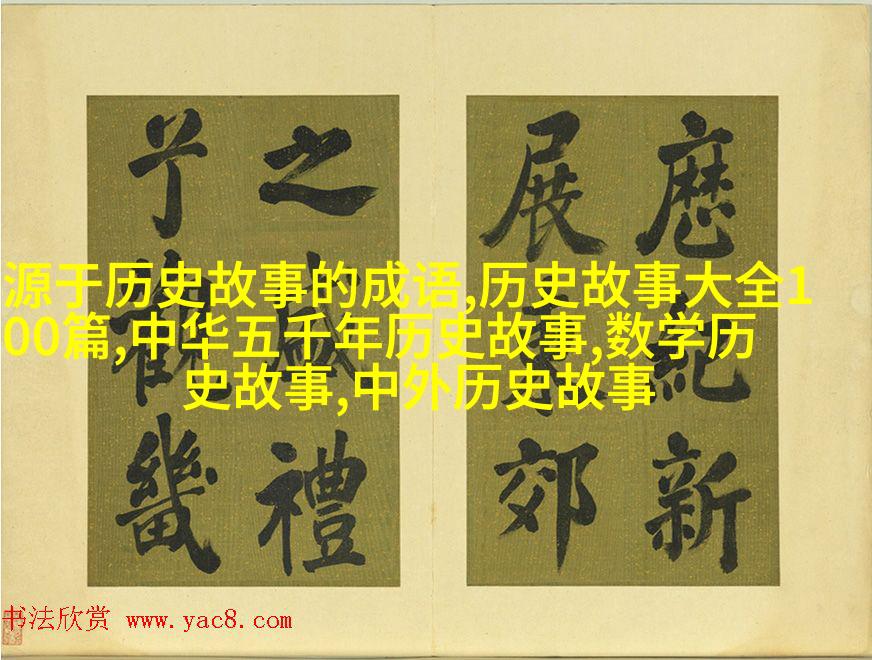 源于历史故事的成语,历史故事大全1
00篇,中华五千年历史故事,数学历
史故事,中外历史故事
曆紀新
展郊
之盛禮
觀畿
书法欣赏 www.yac8.com